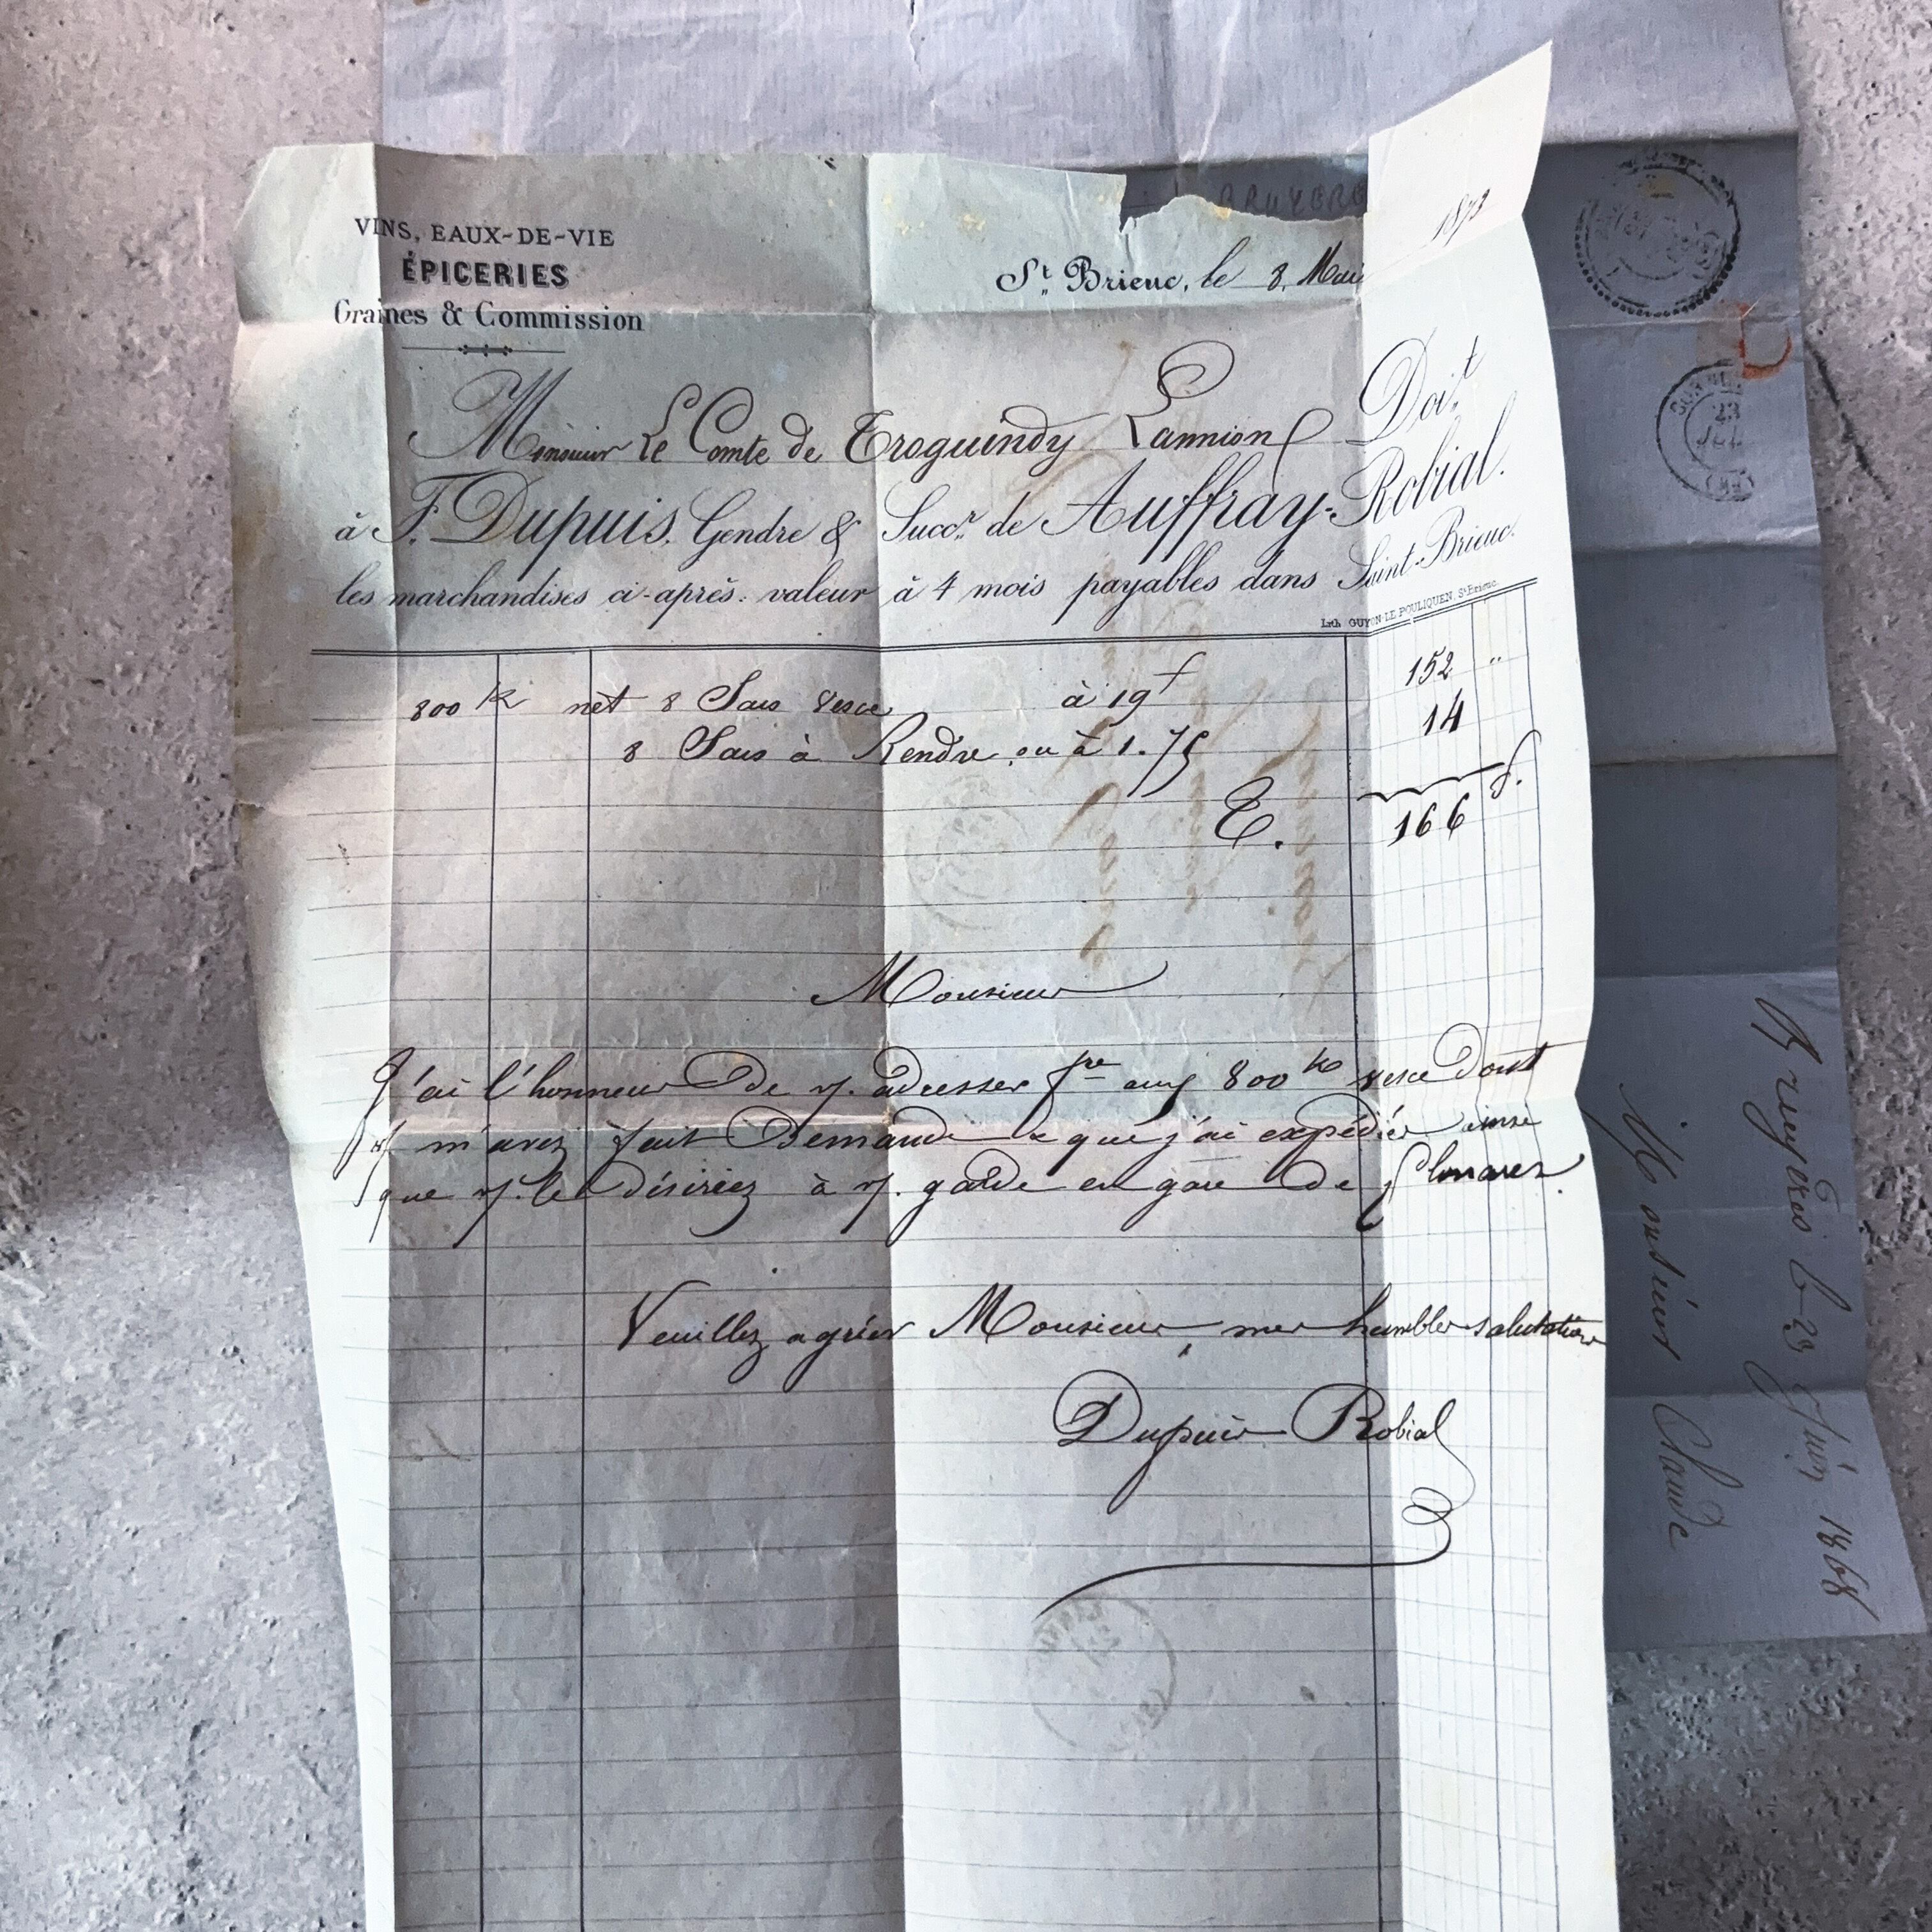 VINS, EAUX-DE-VIE
ÉPICERIES
Graines & Commission
St Brieuc, le 8 Mai 1873
Monsieur Le Comte de Troguindy Lannion Doit
à F. Dupuis, Gendre & Succr. de Auffray-Robial.
les marchandises ci-après: valeur à 4 mois payables dans Saint-Brieuc.
Lith. GUYON-LE POULIQUEN, St Brieuc
800 k net 8 Sacs Vesce à 19f 152 "
8 Sacs à Rendre ou à 1.75 14
E. 166 f.
Monsieur
J'ai l'honneur De v. adresser fre 800 ko vesce Dont
v. m'avez fait Demande & que j'ai expédiée ainsi
que v. le désiriez à v. garde en gare De Plouaret.
Veuillez agréer Monsieur, mes humbles salutations
Dupuis Robial
23
Bruyères le 23 Juin 1868
Monsieur Claude